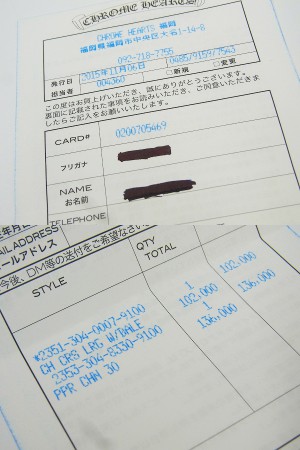 CHROME HEARTS
CHROME HEARTS 福岡
福岡県福岡市中央区大名1-14-8
092-718-7755
発行日 2015年11月06日 0485/9159/7543
担当者 004360 □新規 □変更
この度はお買上げいただき、誠にありがとうございます。
裏面に記載された事項をお読みいただき、ご同意いただきま
したらご記入をお願いいたします。
CARD# 0200705469
フリガナ
NAME
お名前
TELEPHONE
MAILADDRESS
メールアドレス
今後、DM等の送付をご希望なさい
STYLE QTY TOTAL
*2351-304-0007-9100 1 102,000
CH CRS LRG W/BALE 102,000
2353-304-8330-9100 1 136,000
PPR CHN 30 136,000